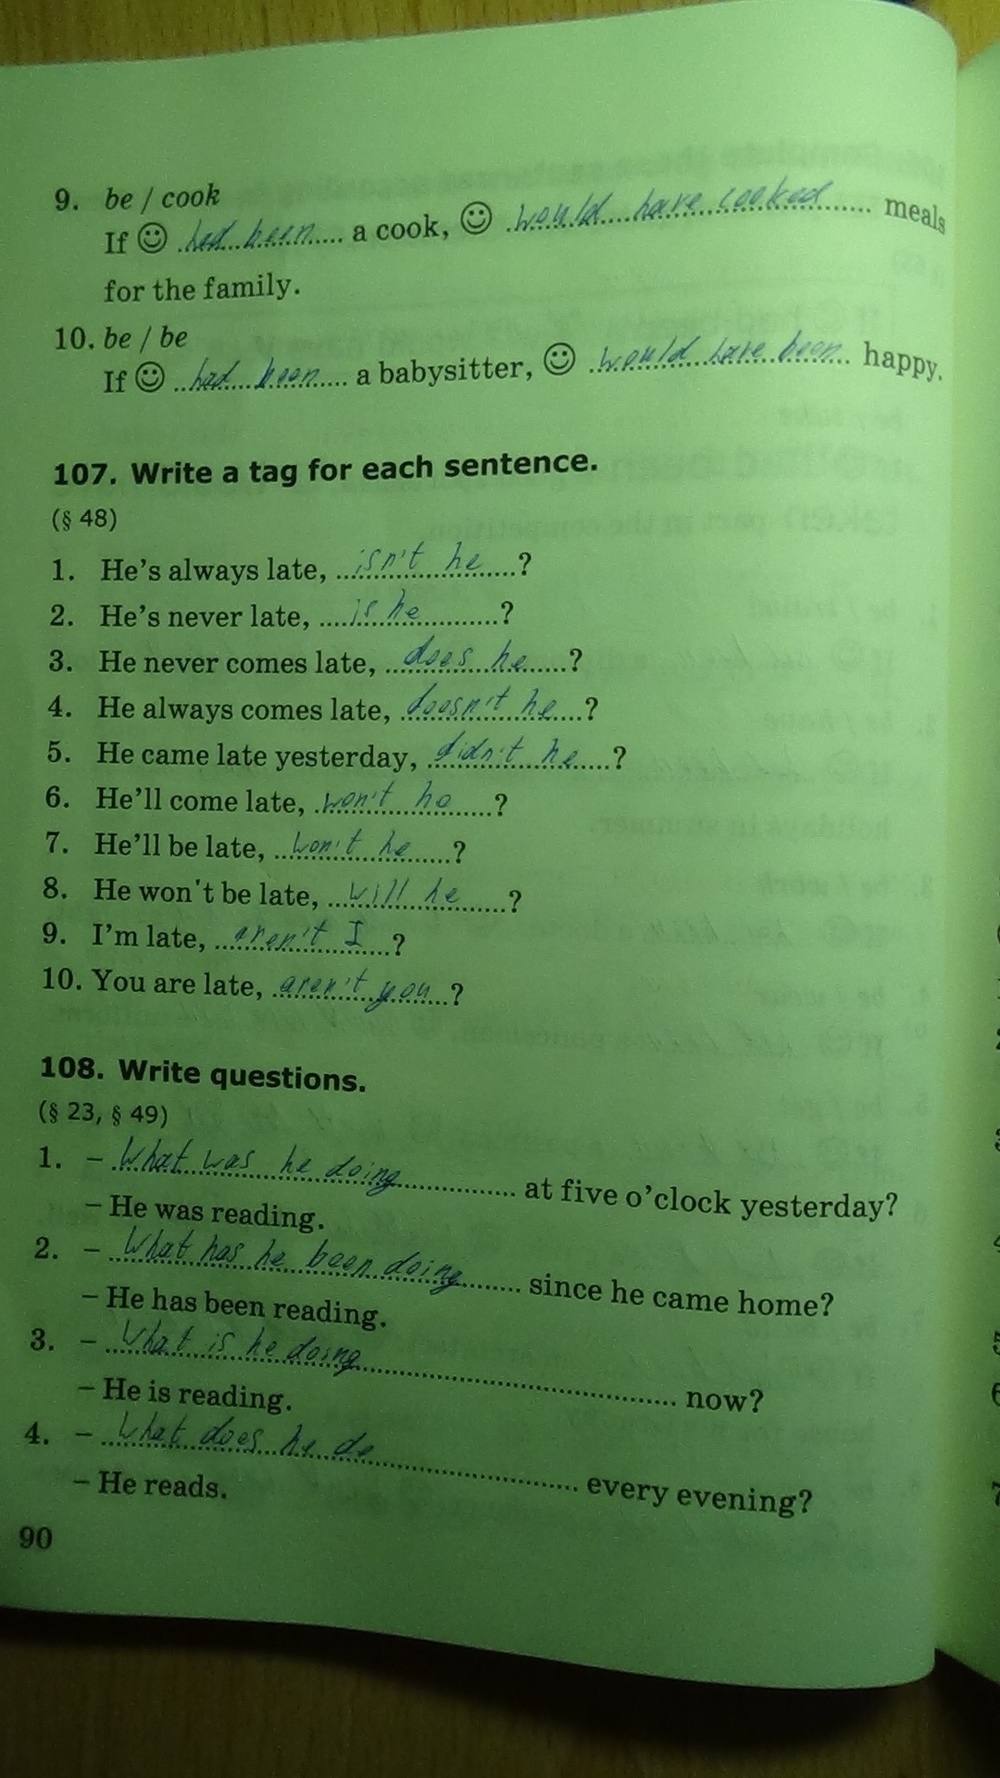 9. be / cook
If ☺ had been a cook, ☺ would have cooked meals
for the family.
10. be / be
If ☺ had been a babysitter, ☺ would have been happy.
107. Write a tag for each sentence.
(§ 48)
1. He's always late, isn't he ?
2. He's never late, is he ?
3. He never comes late, does he ?
4. He always comes late, doesn't he ?
5. He came late yesterday, didn't he ?
6. He'll come late, won't he ?
7. He'll be late, won't he ?
8. He won't be late, will he ?
9. I'm late, aren't I ?
10. You are late, aren't you ?
108. Write questions.
(§ 23, § 49)
1. – What was he doing at five o'clock yesterday?
– He was reading.
2. – What has he been doing since he came home?
– He has been reading.
3. – What is he doing now?
– He is reading.
4. – What does he do every evening?
– He reads.
90